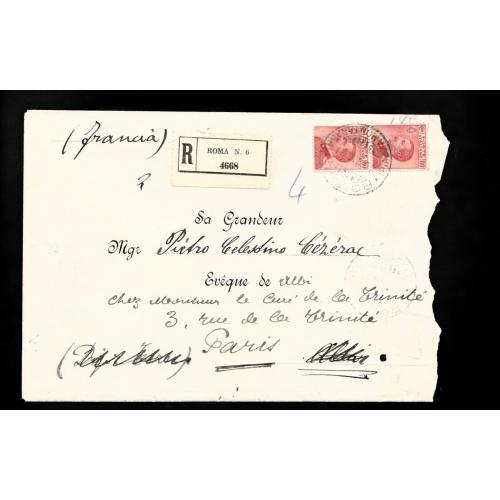 (Francia)
R
ROMA N. 6
4668
2
4
Sa Grandeur
Mgr Piétro Celestino Cézérac
Evêque de Albi
chez Monsieur le Curé de la Trinité
3, rue de la Trinité
Paris
Albi